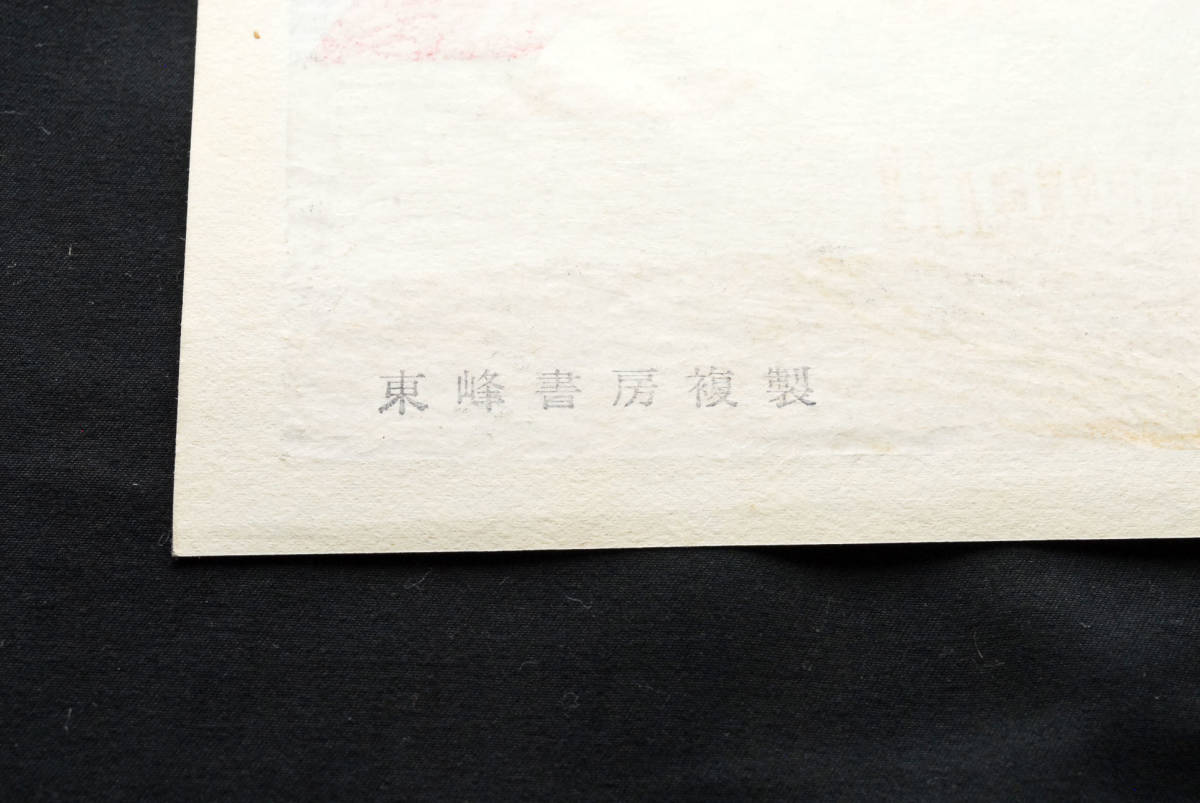 東峰書房複製